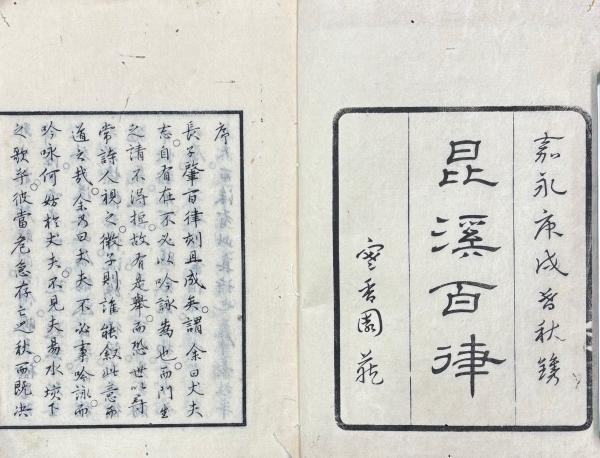 嘉永庚戌首秋鐫
昆溪百律
寒香園蔵
序
長子肇百律刻且成矣請余曰丈夫
志自有在不必以吟詠為也而門生
之請不得拒故有是舉而恐世以尋
常詩人視之微子則誰能叙此意而
道之哉余乃曰丈夫不必事吟詠而
吟詠何妨於丈夫不見夫易水垓下
之歌乎彼當危急存亡之秋而既决